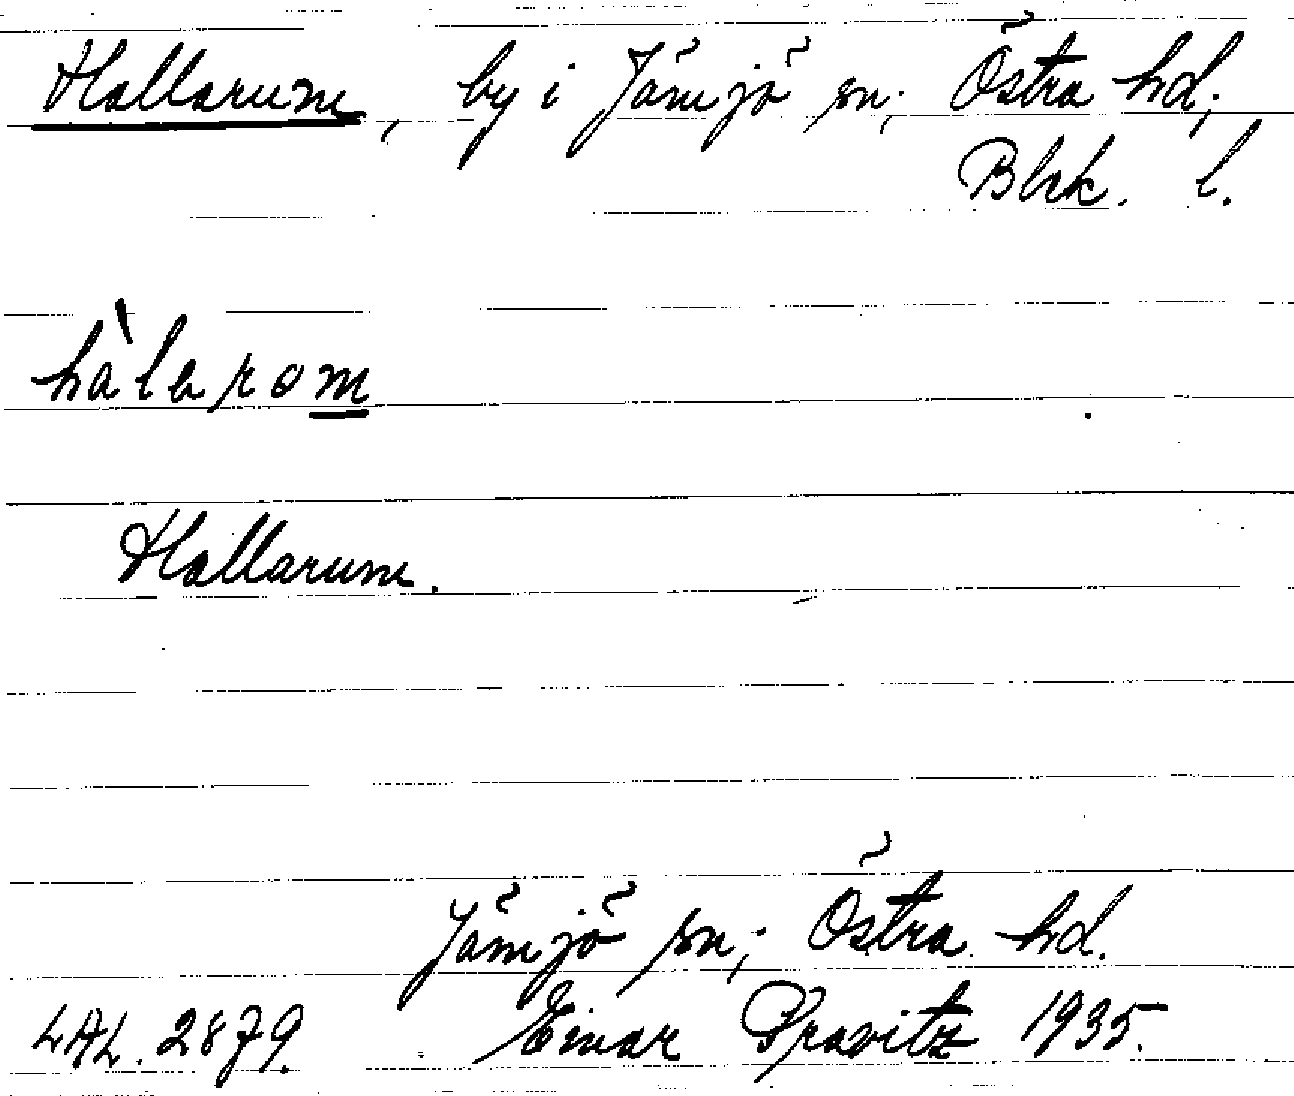 Hallarum, by i Jämjö sn; Östra hd;
Blek. l.
hàlarom
Hallarum.
Jämjö sn; Östra hd.
LAL. 2879. Einar Pravitz 1935.